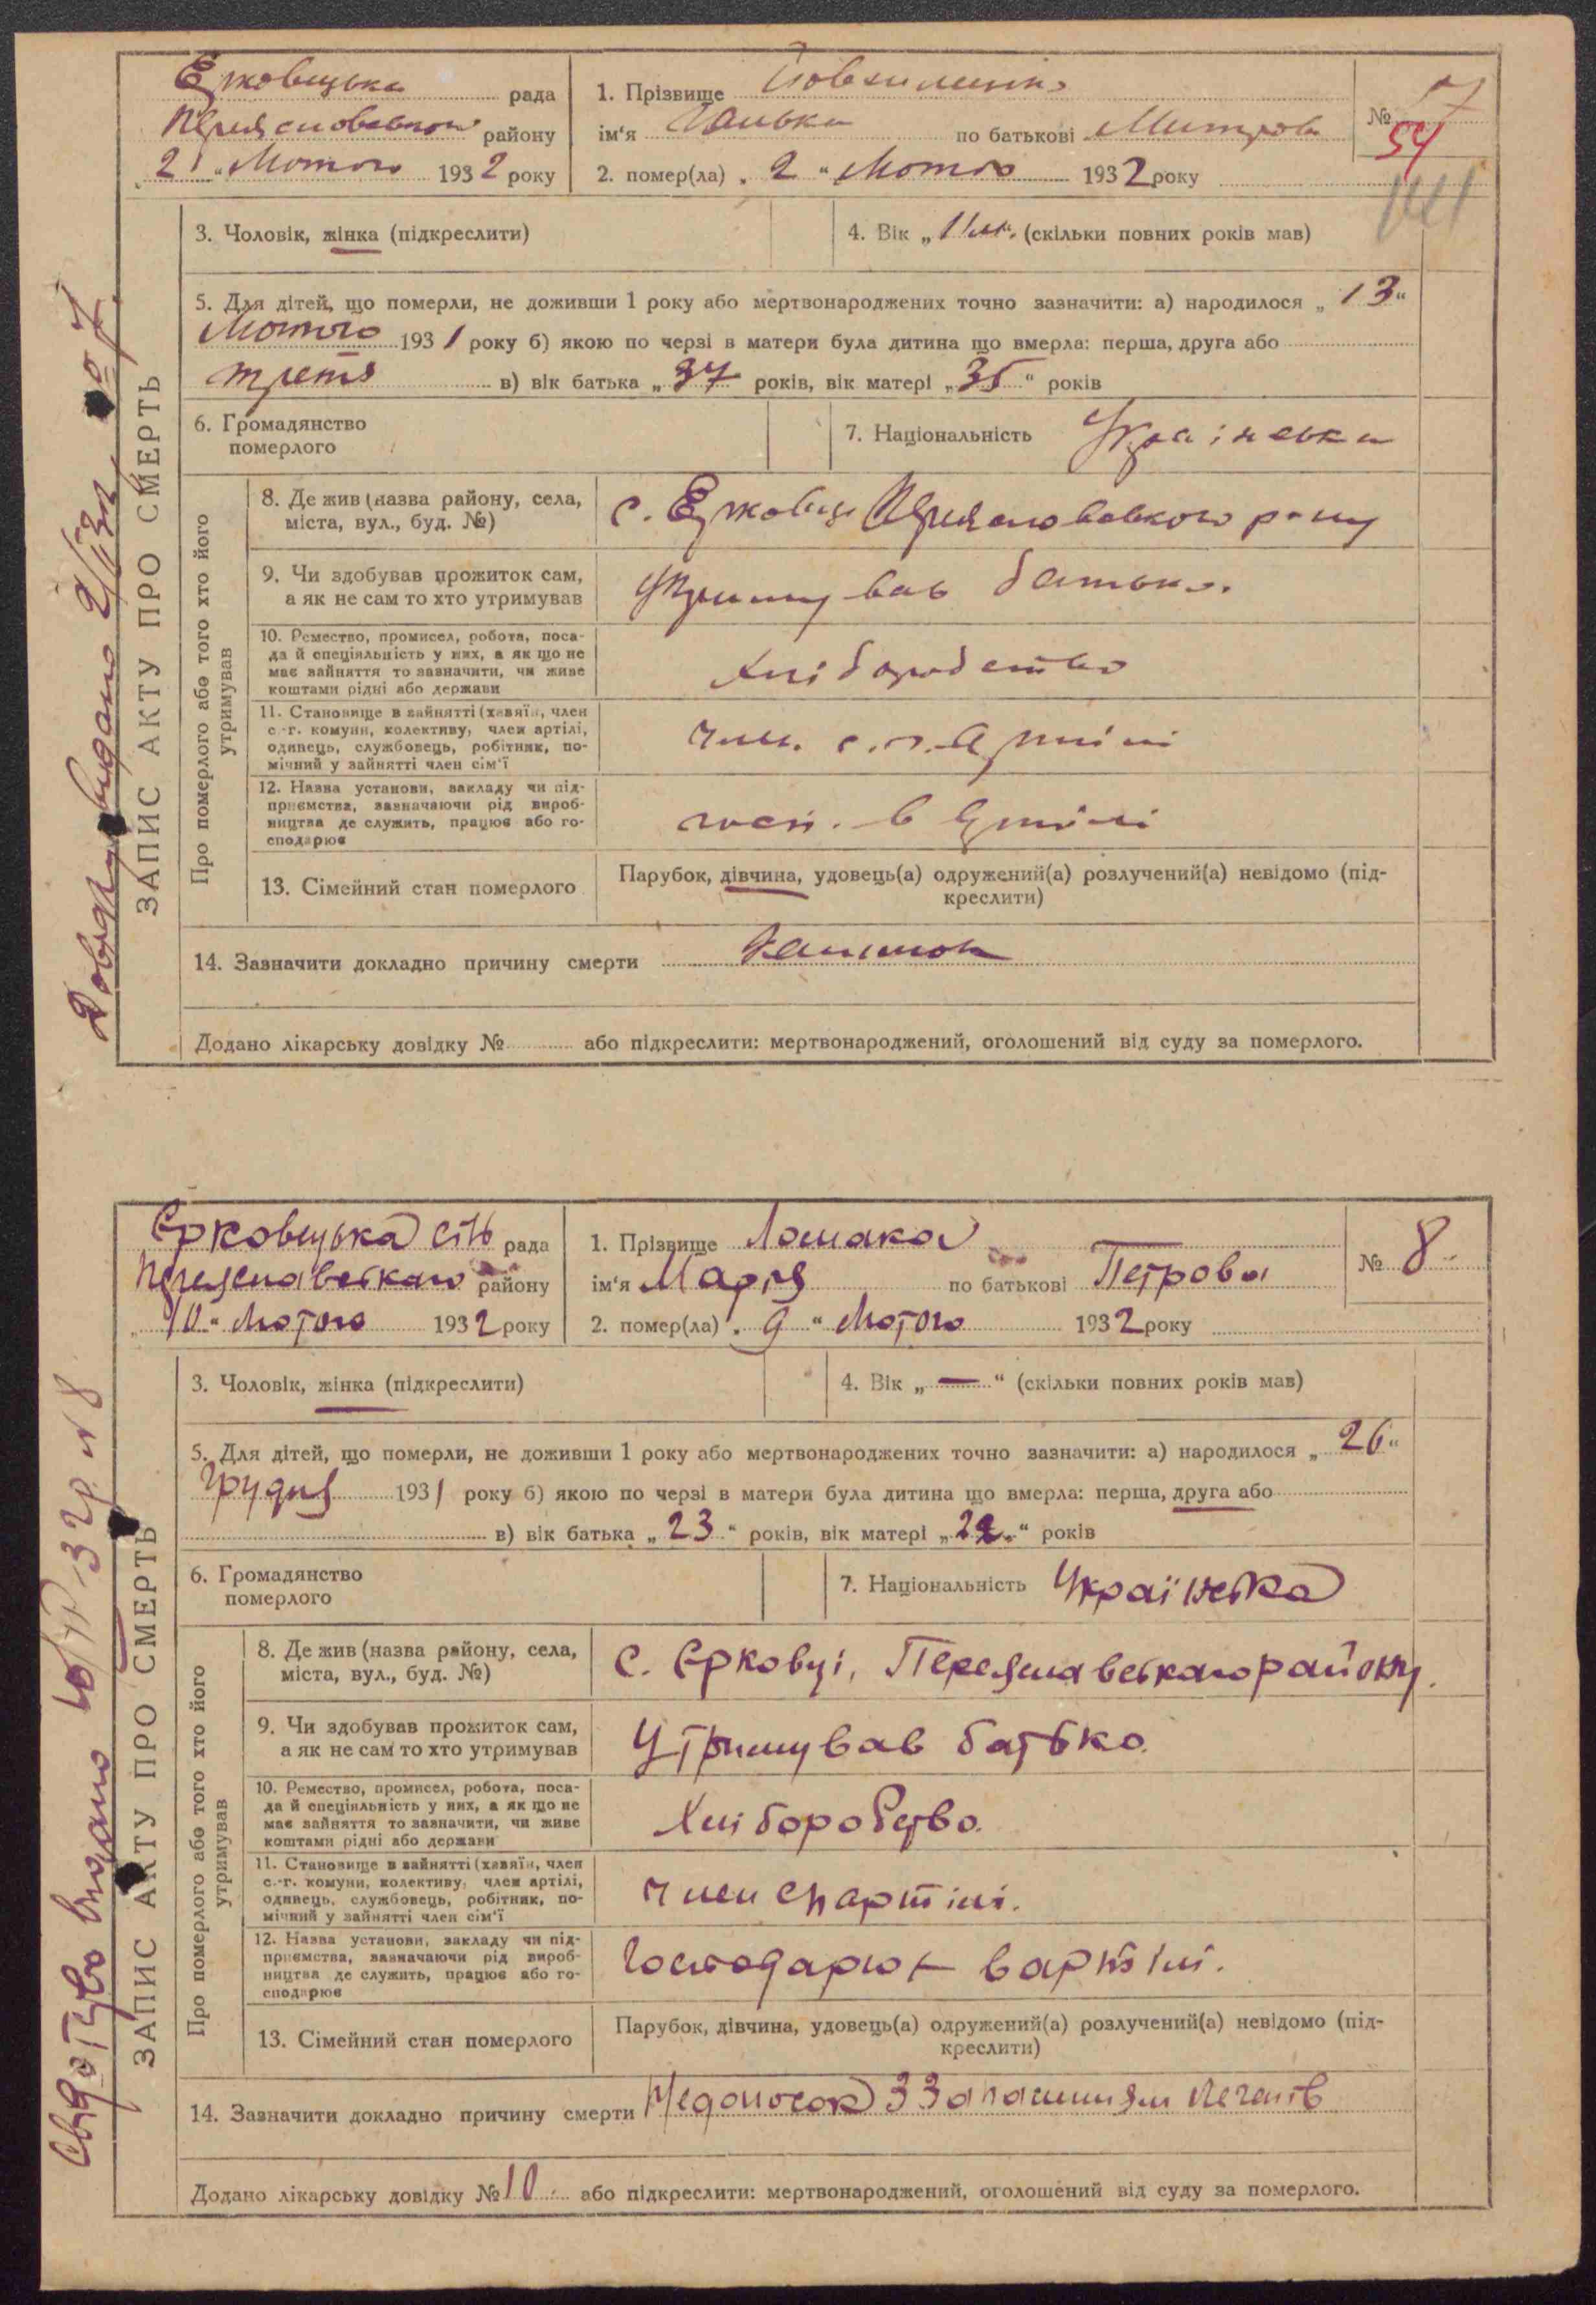 Ерковецька рада
Переяславського району
„2" Лютого 1932 року
1. Прізвище
ім'я Ганька по батькові Митрова
2. помер(ла) „2" Лютого 1932 року
№ 7
54
141
3. Чоловік, жінка (підкреслити)
4. Вік „11 м." (скільки повних років мав)
5. Для дітей, що померли, не доживши 1 року або мертвонароджених точно зазначити: а) народилося „13"
Лютого 1931 року б) якою по черзі в матери була дитина що вмерла: перша, друга або
третя в) вік батька „37 років, вік матері „35" років
6. Громадянство
померлого
7. Національність Українська
ЗАПИС АКТУ ПРО СМЕРТЬ
Про померлого або того хто його
утримував
8. Де жив (назва району, села,
міста, вул., буд. №)
с. Ерковці Переяславського р-ну
9. Чи здобував прожиток сам,
а як не сам то хто утримував
Утримував батько.
10. Ремество, промисел, робота, поса-
да й спеціяльність у них, а як що не
має зайняття то зазначити, чи живе
коштами рідні або держави
Хліборобство
11. Становище в зайнятті (хазяїн, член
с.-г. комуни, колективу, член артілі,
одинець, службовець, робітник, по-
мічний у зайнятті член сім'ї
член. с.г. Артілі
12. Назва установи, закладу чи під-
приємства, зазначаючи рід вироб-
ництва де служить, працює або го-
сподарює
госп. в Артілі
13. Сімейний стан померлого
Парубок, дівчина, удовець(а) одружений(а) розлучений(а) невідомо (під-
креслити)
14. Зазначити докладно причину смерти
Додано лікарську довідку № або підкреслити: мертвонароджений, оголошений від суду за померлого.
Єрковецька сіль рада
Переяславського району
„10" Лютого 1932 року
1. Прізвище Ломака
ім'я Марія по батькові Петрова
2. помер(ла) „9" Лютого 1932 року
№ 8
3. Чоловік, жінка (підкреслити)
4. Вік „—" (скільки повних років мав)
5. Для дітей, що померли, не доживши 1 року або мертвонароджених точно зазначити: а) народилося „26"
Грудня 1931 року б) якою по черзі в матери була дитина що вмерла: перша, друга або
в) вік батька „23" років, вік матері „22" років
6. Громадянство
померлого
7. Національність Українська
ЗАПИС АКТУ ПРО СМЕРТЬ
Про померлого або того хто його
утримував
8. Де жив (назва району, села,
міста, вул., буд. №)
с. Єрковці, Переяславського району.
9. Чи здобував прожиток сам,
а як не сам то хто утримував
Утримував батько.
10. Ремество, промисел, робота, поса-
да й спеціяльність у них, а як що не
має зайняття то зазначити, чи живе
коштами рідні або держави
Хліборобство.
11. Становище в зайнятті (хазяїн, член
с.-г. комуни, колективу, член артілі,
одинець, службовець, робітник, по-
мічний у зайнятті член сім'ї
член сг артілі.
12. Назва установи, закладу чи під-
приємства, зазначаючи рід вироб-
ництва де служить, працює або го-
сподарює
Господарює в артілі.
13. Сімейний стан померлого
Парубок, дівчина, удовець(а) одружений(а) розлучений(а) невідомо (під-
креслити)
14. Зазначити докладно причину смерти Недоносок з запаленням легенів
Додано лікарську довідку № 10 або підкреслити: мертвонароджений, оголошений від суду за померлого.